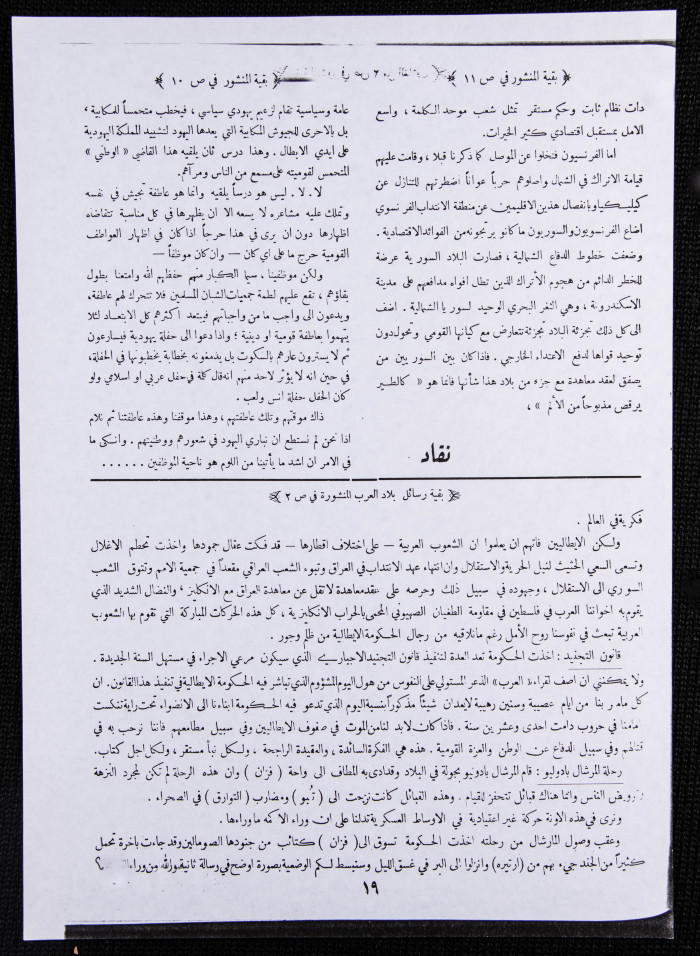 ﴿ بقية المنشور في ص ١١ ﴾
ذات نظام ثابت وحكم مستقر تمثل شعب موحد الكلمة ، واسع
الامل بمستقبل اقتصادي كثير الخيرات.
اما الفرنسيون فتخلوا عن الموصل كما ذكرنا قبلا ، وقامت عليهم
قيامة الاتراك في الشمال واصلوهم حرباً عواناً اضطرتهم للتنازل عن
كيليكيا وبانفصال هذين الاقليمين عن منطقة الانتداب الفرنسوي
اضاع الفرنسويون والسوريون ما كانو يرتجونه من الفوائد الاقتصادية .
وضعفت خطوط الدفاع الشمالية ، فصارت البلاد السورية عرضة
للخطر الدائم من هجوم الأتراك الذين تطل افواه مدافعهم على مدينة
الاسكندرونة ، وهي الثغر البحري الوحيد لسوريا الشمالية . اضف
الى كل ذلك تجزئة البلاد تجزئة تتعارض مع كيانها القومي وتحول دون
توحيد قواها لدفع الاعتداء الخارجي . فاذا كان بين السوريين من
يصفق لعقد معاهدة مع جزء من بلاد هذا شأنها فانما هو « كالطير
يرقص مذبوحاً من الألم » ،
نقاد
﴿ بقية المنشور في ص ١٠ ﴾
عامة وسياسية تقام لزعيم يهودي سياسي ، فيخطب متحمساً للمكابية ،
بل بالاحرى للجيوش المكابية التي يعدها اليهود لتشييد المملكة اليهودية
على ايدي الابطال . وهذا درس ثان يلقيه هذا القاضي « الوطني »
المتحمس لقوميته على مسمع من الناس ومرآهم.
لا . لا . ليس هو درساً يلقيه وانما هو عاطفة تجيش في نفسه
وتملك عليه مشاعره لا يسعه الا ان يظهرها في كل مناسبة تتقاضاه
اظهارها دون ان يرى في هذا حرجاً اذا كان في اظهار العواطف
القومية حرج ما على اي كان — وان كان موظفاً —
ولكن موظفينا ، سيما الكبار منهم حفظهم الله وامتعنا بطول
بقاؤهم ، تقع عليهم لطمة جمعيات الشبان المسلمين فلا تتحرك لهم عاطفة.
ويدعون الى واجب ما من واجباتهم فيبتعد أكثرهم كل الابتعاد لئلا
يتهموا بعاطفة قومية او دينية ؛ واذا دعوا الى حفلة يهودية فيسارعون
ثم لا يسترون عارهم بالسكوت بل يدمغونه بخطابة يخطبونها في الحفلة،
في حين انه لا يؤثر لاحد منهم انه قال كلة في حفل عربي او اسلامي ولو
كان الحفل حفلة انس ولعب .
ذاك موقفهم وتلك عاطفتهم ، وهذا موقفنا وهذه عاطفتنا ثم نلام
اذا نحن لم نستطع ان نباري اليهود في شعورهم ووطنيتهم . وانكى ما
في الامر ان اشد ما يأتينا من اللوم هو ناحية الموظفين ......
﴿ بقية رسائل بلاد العرب المنشورة في ص ٢ ﴾
فكرية في العالم .
ولكن الايطاليين فاتهم ان يعلموا ان الشعوب العربية — على اختلاف اقطارها — قد فكت عقال جمودها واخذت تحطم الاغلال
وتسعى السعي الحثيث لنيل الحرية والاستقلال وان انتهاء عهد الانتداب في العراق وتبوء الشعب العراقي مقعداً في جمعية الامم وتتوق الشعب
السوري الى الاستقلال ، وجهوده في سبيل ذلك وحرصه على عقد معاهدة لا تقل عن معاهدة العراق مع الانكليز ، والنضال الشديد الذي
يقوم به اخواننا العرب في فلسطين في مقاومة الطغيان الصهيوني المحمي بالحراب الانكليزية ، كل هذه الحركات المباركة التي تقوم بها الشعوب
العربية تبعث في نفوسنا روح الأمل رغم مانلاقيه من رجال الحكومة الايطالية من ظلم وجور .
قانون التجنيد : اخذت الحكومة تعد العدة لتنفيذ قانون التجنيد الاجباري الذي سيكون مرعي الاجراء في مستهل السنة الجديدة .
ولا يمكنني ان اصف لقراء « العرب » الذعر المستولي على النفوس من هول اليوم المشؤوم الذي تباشر فيه الحكومة الايطالية في تنفيذ هذا القانون. ان
كل ما مر بنا من ايام عصيبة وسنين رهيبة لايعدان شيئاً مذكوراً بنسبة اليوم الذي تدعو فيه الحكومة ابناءنا الى الانضواء تحت راية تنكست
امامنا في حروب دامت احدى وعشرين سنة . فاذا كان لابد لنا من الموت في صفوف الايطاليين وفي سبيل مطامعهم فاننا نرحب به في
قتالهم وفي سبيل الدفاع عن الوطن والعزة القومية . هذه هي الفكرة السائدة ، والعقيدة الراجحة ، ولكل نبأ مستقر ، ولكل اجل كتاب.
رحلة المرشال بادوليو : قام المرشال بادونيو بجولة في البلاد وقد ادى به المطاف الى واحة ( فزان ) وان هذه الرحلة لم تكن لمجرد النزهة
وترويض الناس وانما هناك قبائل تتحفز للقيام . وهذه القبائل كانت نزحت الى ( تبو ) ومضارب ( التوارق ) في الصحراء .
ونرى في هذه الآونة حركة غير اعتيادية في الاوساط العسكرية تدلنا على ان وراء الاكمة ماوراءها .
وعقب وصول المارشال من رحلته اخذت الحكومة تسوق الى ( فزان ) كتائب من جنودها الصوماليين وقد جاءت باخرة تحمل
كثيراً من الجند جيء بهم من ( ارتيره ) وانزلوا الى البر في غسق الليل وسنبسط لكم الوضعية بصورة اوضح في رسالة ثانية والله من وراء
١٩